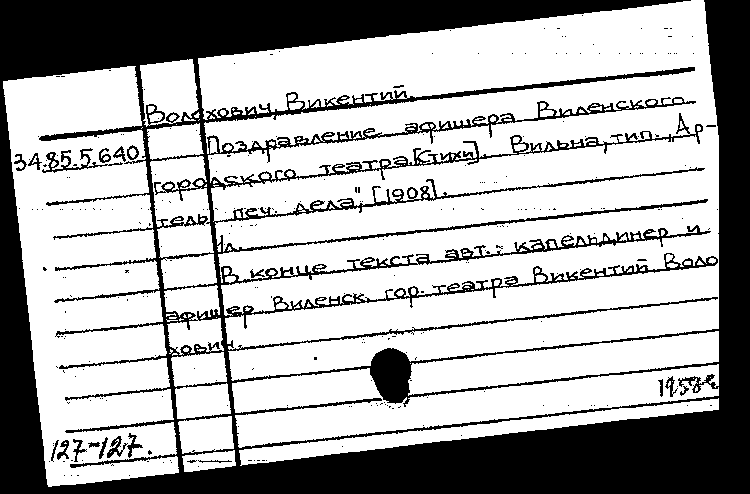 Волохович, Викентий.
34.85.5.640
Поздравление афишера Виленского
городского театра.[Стихи]. Вильна, тип. „Ар-
тель печ. дела", [1908].
1л.
В конце текста авт.: капельдинер и
афишер Виленск. гор. театра Викентий Воло
хович.
127-127.